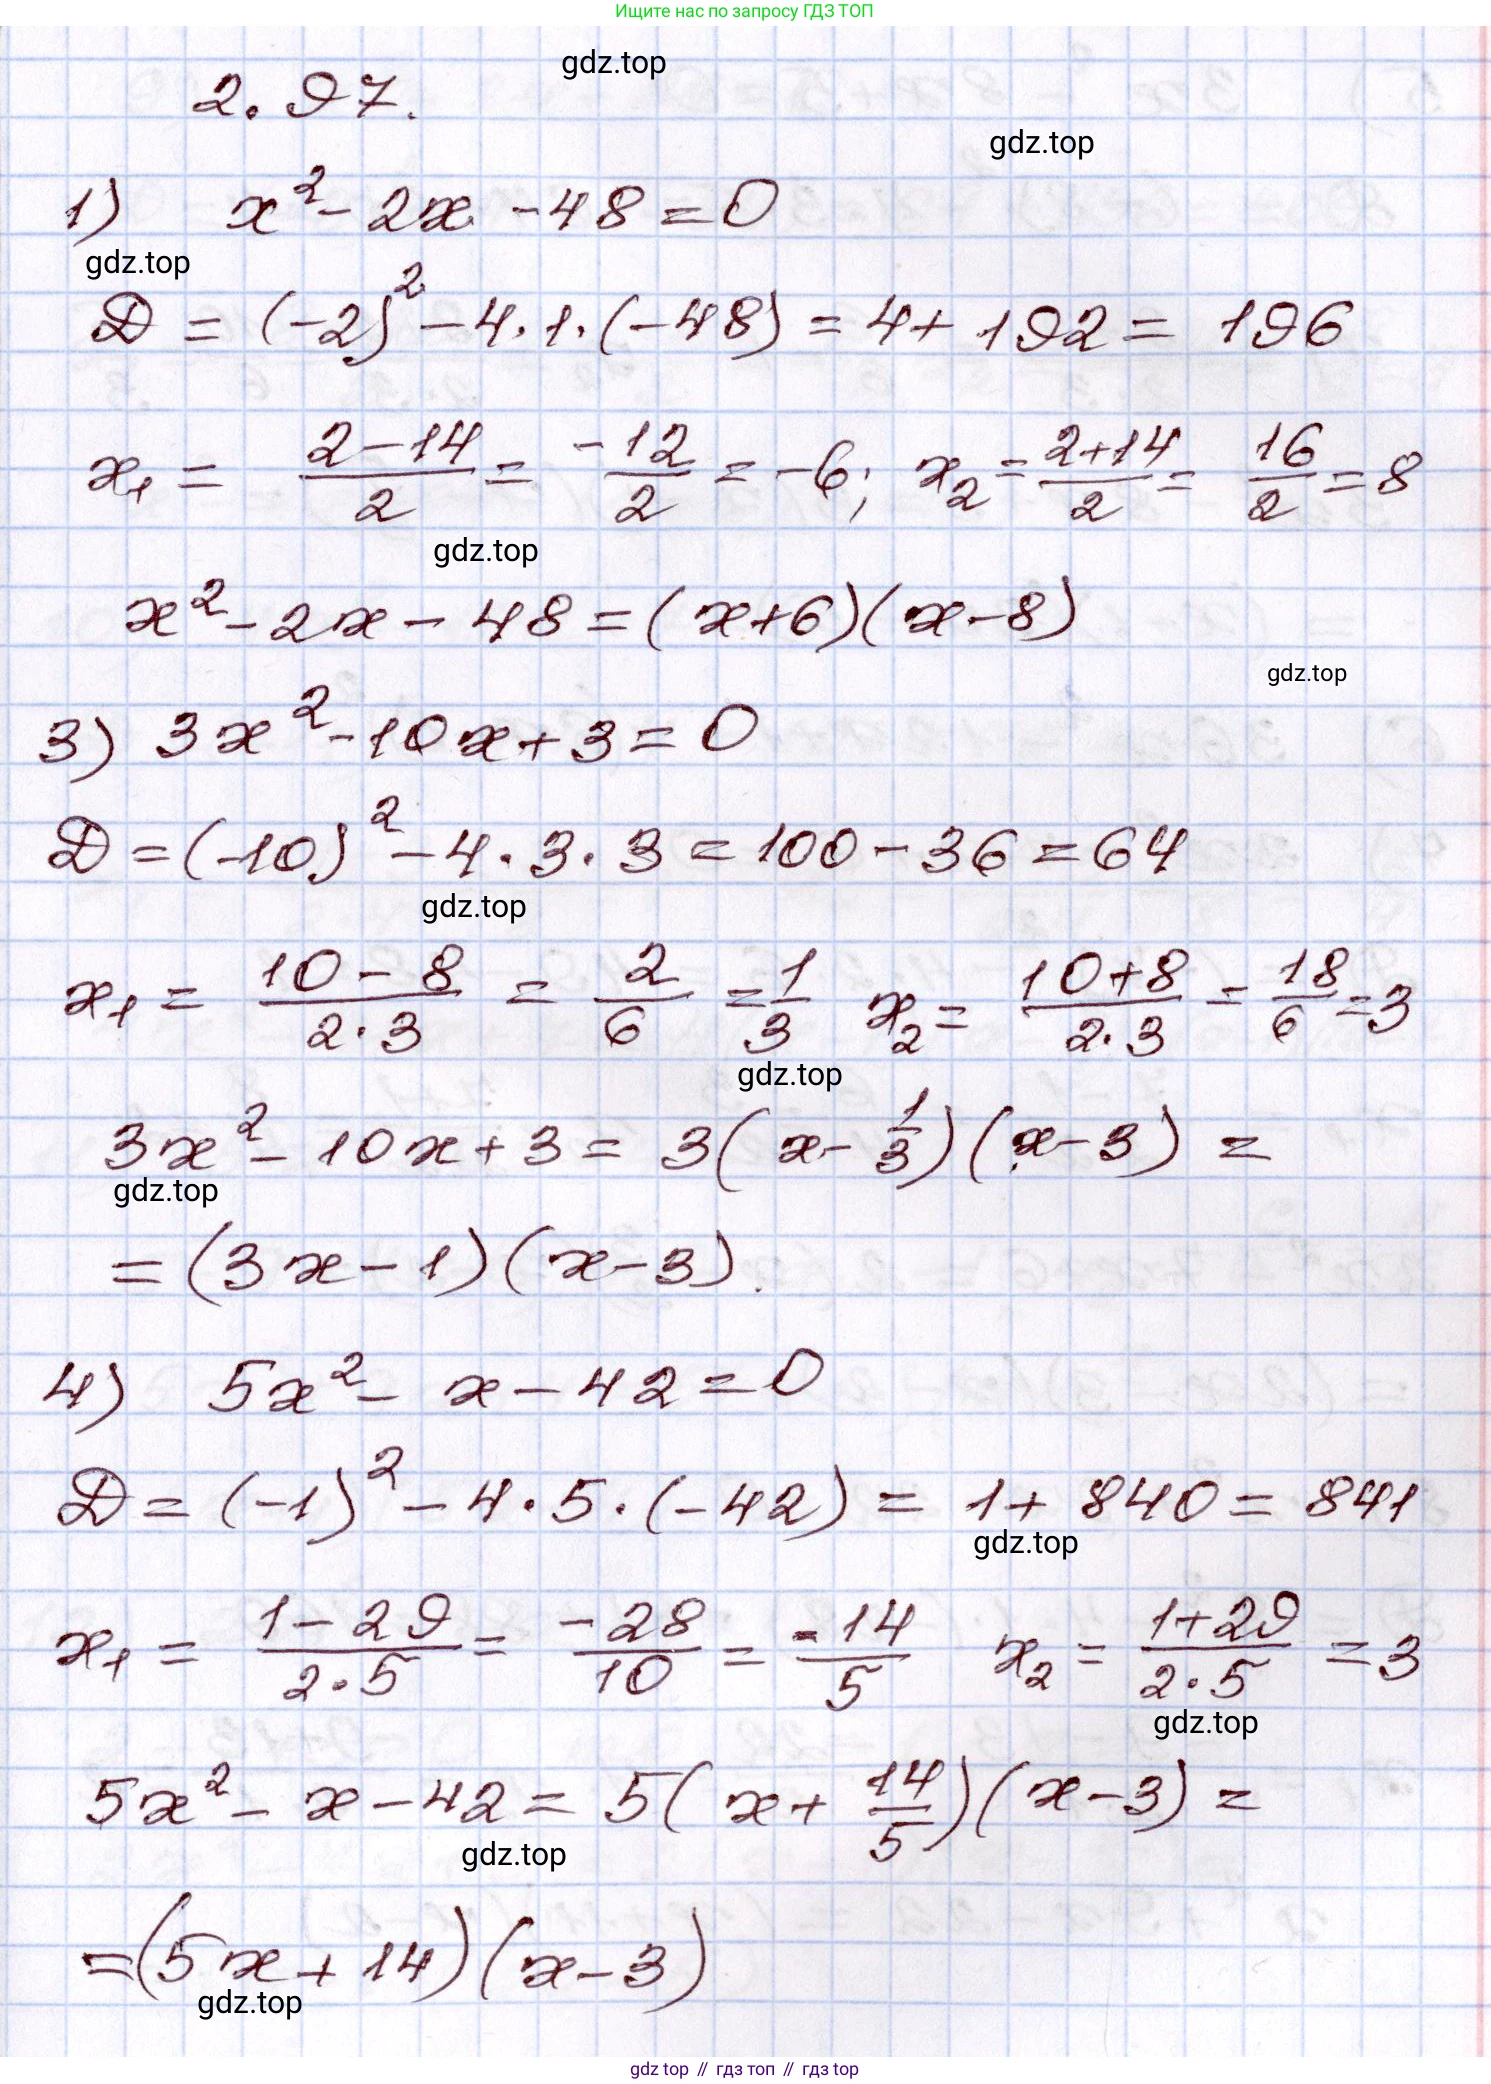 Ищите нас по запросу ГДЗ ТОП
gdz.top
2.97.
gdz.top
1) x² - 2x - 48 = 0
gdz.top
D = (-2)² - 4·1·(-48) = 4 + 192 = 196
x₁ = (2-14)/2 = -12/2 = -6; x₂ = (2+14)/2 = 16/2 = 8
gdz.top
x² - 2x - 48 = (x+6)(x-8)
gdz.top
3) 3x² - 10x + 3 = 0
D = (-10)² - 4·3·3 = 100 - 36 = 64
gdz.top
x₁ = (10-8)/(2·3) = 2/6 = 1/3 x₂ = (10+8)/(2·3) = 18/6 = 3
gdz.top
3x² - 10x + 3 = 3(x - 1/3)(x - 3) =
gdz.top
= (3x - 1)(x - 3).
4) 5x² - x - 42 = 0
D = (-1)² - 4·5·(-42) = 1 + 840 = 841
gdz.top
x₁ = (1-29)/(2·5) = -28/10 = -14/5 x₂ = (1+29)/(2·5) = 3
gdz.top
5x² - x - 42 = 5(x + 14/5)(x - 3) =
gdz.top
= (5x + 14)(x - 3)
gdz.top
gdz top // гдз топ // gdz top